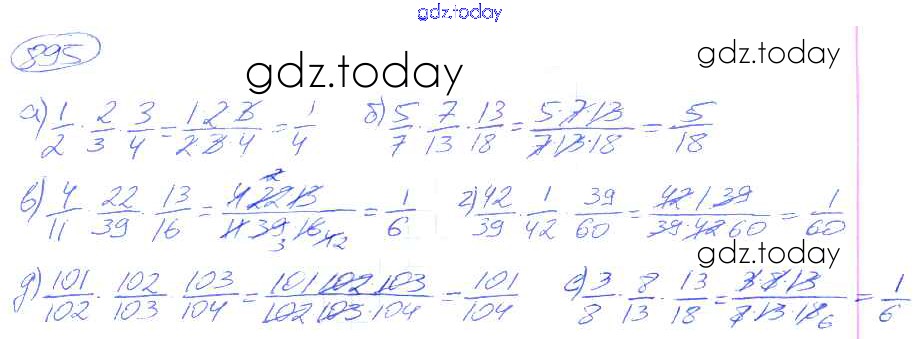 gdz.today
895
gdz.today
gdz.today
а) 1/2 · 2/3 · 3/4 = 1·2·3/2·3·4 = 1/4 б) 5/7 · 7/13 · 13/18 = 5·7·13/7·13·18 = 5/18
в) 4/11 · 22/39 · 13/16 = 4·22·13/11·39·16 = 1/6 г) 42/39 · 1/42 · 39/60 = 42·1·39/39·42·60 = 1/60
gdz.today
д) 101/102 · 102/103 · 103/104 = 101·102·103/102·103·104 = 101/104 е) 3/8 · 8/13 · 13/18 = 3·8·13/8·13·18 = 1/6